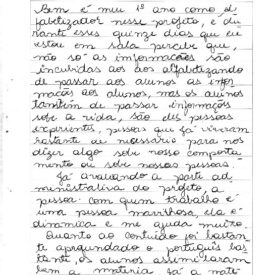 Bem é meu 1º ano como al
fabetizador nesse projeto, e du
rante esses quinze dias que eu
estou em sala percebi que,
não só as informações são
incubidas aos aos alfabetizando
de passar aos alunos as infor
mações aos alunos, mas os alunos
também de passar informações
sobre a vida, são eles pessoas
experientes, pessoas que já viveram
bastante ou necessário para nos
dizer algo sobre nosso comporta
mento ou sobre nossas pessoas.
Já avaliando a parte ad
ministrativa do projeto, a
pessoa com quem trabalho é
uma pessoa maravilhosa, ela é
dinamica e me ajuda muito.
Quanto ao contúdo foi bastan
te aprofundado o português bas
tante, os alunos assimilaram
bem a materia já a mate